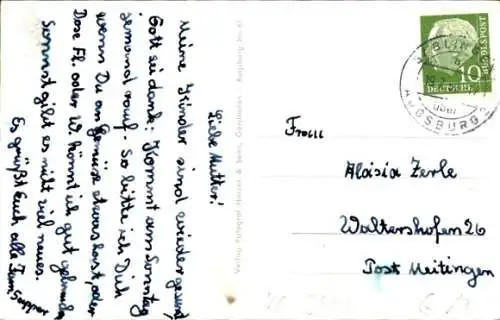 Liebe Mutter!
Meine Kinder sind wieder gesund
Gott sei dank! Kommt am Sonntag
jemand rauf. So bitte ich Dich
wenn Du an Gemüse etwas hast, oder
Dose Fl. oder W. könnt ich gut gebrauchen
Sonnst gibt es nitt viel neues.
Es grüßt Euch alle
Verlag Fotograf
Augsburg
DEUTSCHE BUNDESPOST
10
über
AUGSBURG 2
Frau
Aloisia Zerle
Waltershofen 26
Post Meitingen